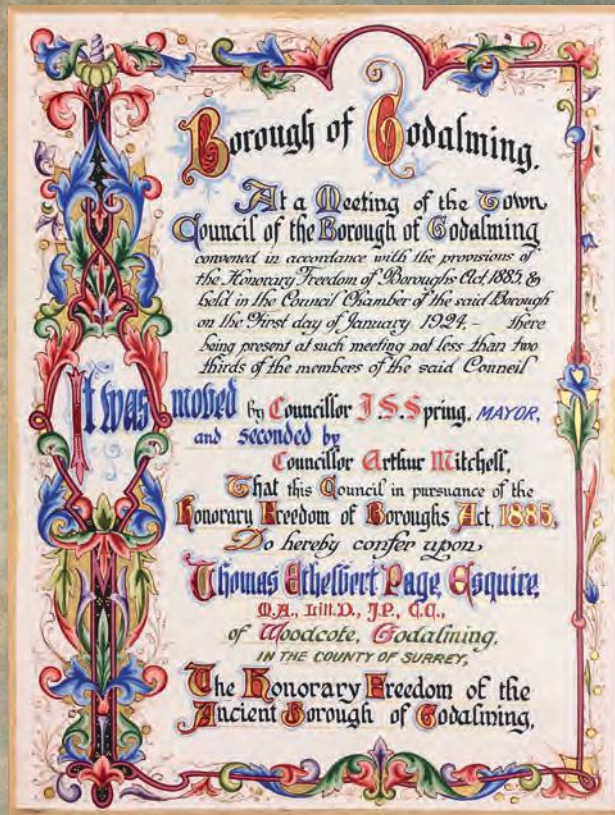 Borough of Godalming.
At a Meeting of the Town
Council of the Borough of Godalming
convened in accordance with the provisions of
the Honorary Freedom of Boroughs Act, 1885, &
held in the Council Chamber of the said Borough
on the First day of January 1924, – there
being present at such meeting not less than two
thirds of the members of the said Council
It was moved by Councillor J.S.Spring, MAYOR,
and seconded by
Councillor Arthur Mitchell,
That this Council in pursuance of the
Honorary Freedom of Boroughs Act, 1885,
Do hereby confer upon
Thomas Ethelbert Page, Esquire,
M.A., Litt.D., J.P., C.C.,
of Woodcote, Godalming,
IN THE COUNTY OF SURREY,
The Honorary Freedom of the
Ancient Borough of Godalming,